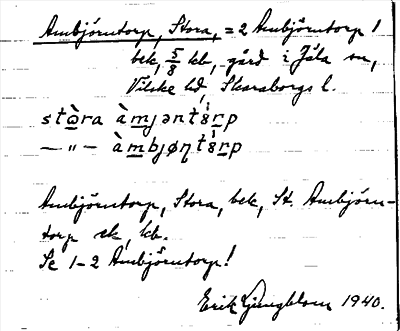 Ambjörntorp, Stora, = 2 Ambjörntorp 1
bek, 5/8 kb, gård i Jäla sn,
Vilske hd, Skaraborgs l.
stò̱ra àm̱jəntɞ́ṟp
— „ — àm̱bjøꞑtɞ́ṟp
Ambjörntorp, Stora, bek, St. Ambjörn-
torp ek, kb.
Se 1-2 Ambjörntorp!
Erik Ljungblom 1940.